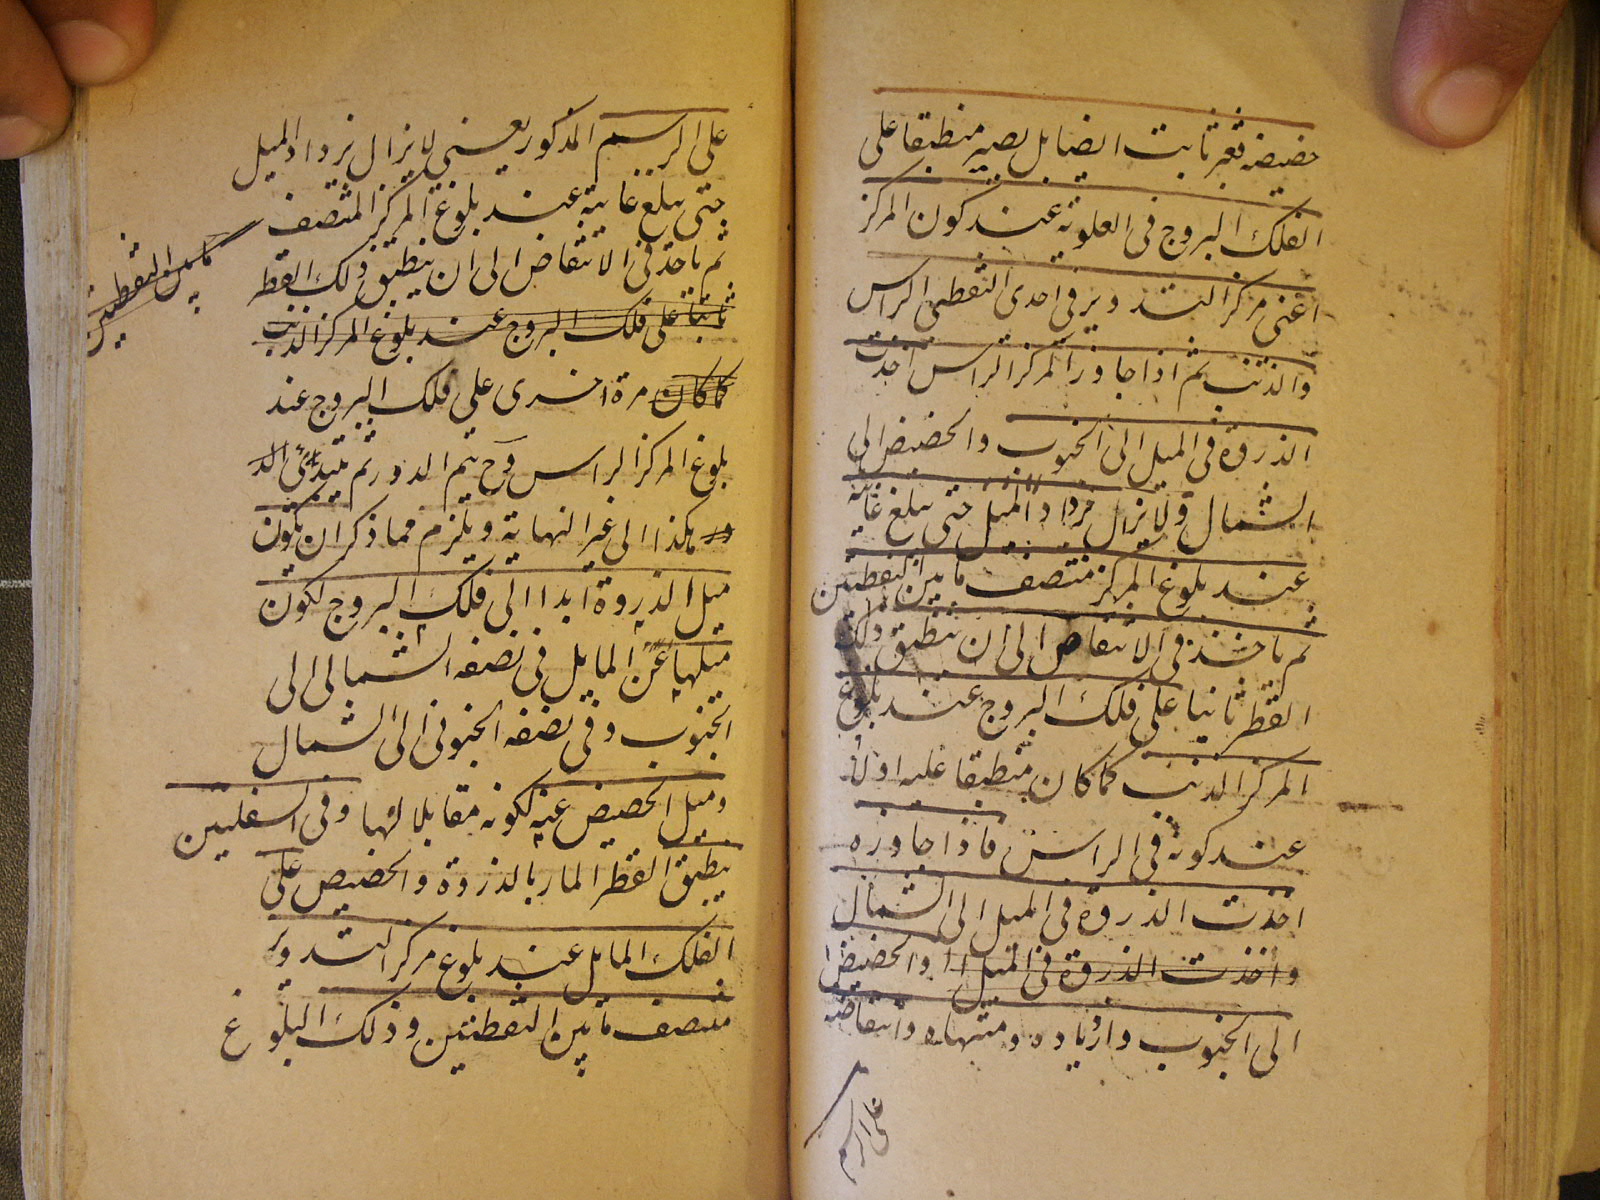 حضيضه فغير ثابت ايضا بل يصير منطبقا على
الفلك البروج فى العلوية عند كون المركز
اعنى مركز التدوير فى احدى النقطتى الراس
والذنب ثم اذا جاوز المركز الراس اخذت
الذروة فى الميل الى الجنوب والحضيض الى
الشمال ولا يزال يزداد الميل حتى يبلغ غايته
عند بلوغ المركز منتصف ما بين النقطتين
ثم ياخذ فى الانتقاص الى ان ينطبق ذلك
القطر ثانيا على فلك البروج عند بلوغ
المركز الذنب كما كان منطبقا عليه اولا
عند كونه فى الراس فاذا جاوزه
اخذت الذروة فى الميل الى الشمال
واخذت الذروة فى الميل ا والحضيض
الى الجنوب وازدياده ومنتهاه وانتقاصه
على الرسم
على الرسم المذكور يعنى لا يزال يزداد الميل
حتى يبلغ غايته عند بلوغ المركز المنتصف
ما بين النقطتين
ثم ياخذ فى الانتقاص الى ان ينطبق ذلك القطر
ثانيا على فلك البروج عند بلوغ المركز الذنب
كما كان مرة اخرى على فلك البروج عند
بلوغ المركز الراس وح يتم الدور ثم يبتدئ
هكذا الى غير النهاية ويلزم مما ذكر ان يكون
ميل الذروة ابدا الى فلك البروج لكون
ميلها عن المايل فى نصفه الشمالى الى
الجنوب وفى نصفه الجنوبى الى الشمال
وميل الحضيض عنه لكونه مقابلا لها وفى السفليين
ينطبق القطر المار بالذروة والحضيض على
الفلك المايل عند بلوغ مركز التدوير
منتصف ما بين النقطتين وذلك البلوغ